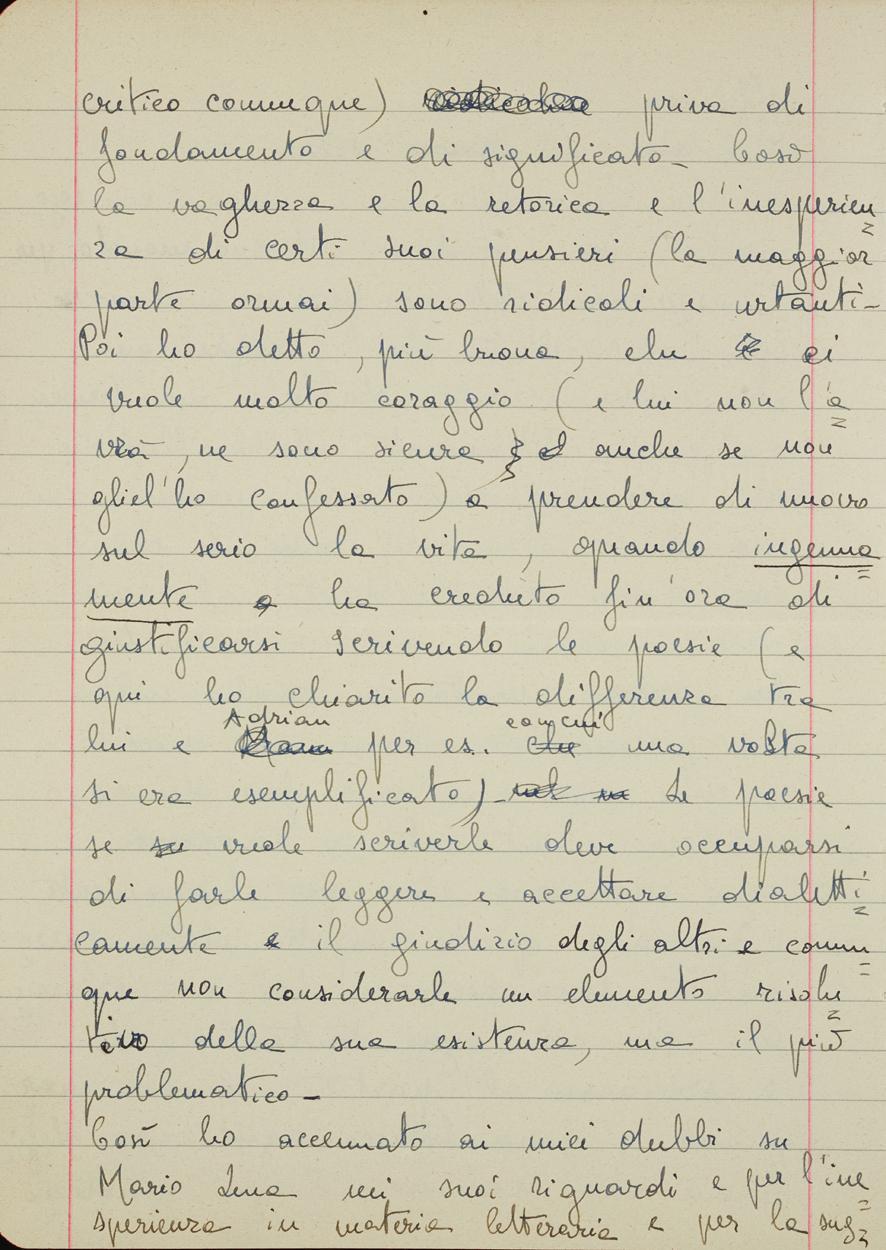 critico comunque) priva di
fondamento e di significato_ Così
la vaghezza e la retorica e l'inesperien=
za di certi suoi pensieri (la maggior
parte ormai) sono ridicoli e urtanti_
Poi ho detto, più buona, che ci
vuole molto coraggio (e lui non l'a=
vrà, ne sono sicura anche se non
gliel'ho confessato) a prendere di nuovo
sul serio la vita, quando ingenua=
mente ha creduto fin'ora di
giustificarsi scrivendo le poesie (e
qui ho chiarito la differenza tra
lui e Adrian per es. con cui una volta
si era esemplificato)_ Le poesie
se vuole scriverle deve occuparsi
di farle leggere e accettare dialetti=
camente il giudizio degli altri e comun=
que non considerarle un elemento risolu=
tivo della sua esistenza, ma il più
problematico_
Così ho accennato ai miei dubbi su
Mario Luna nei suoi riguardi e per l'ine=
sperienza in materia letteraria e per la sug=